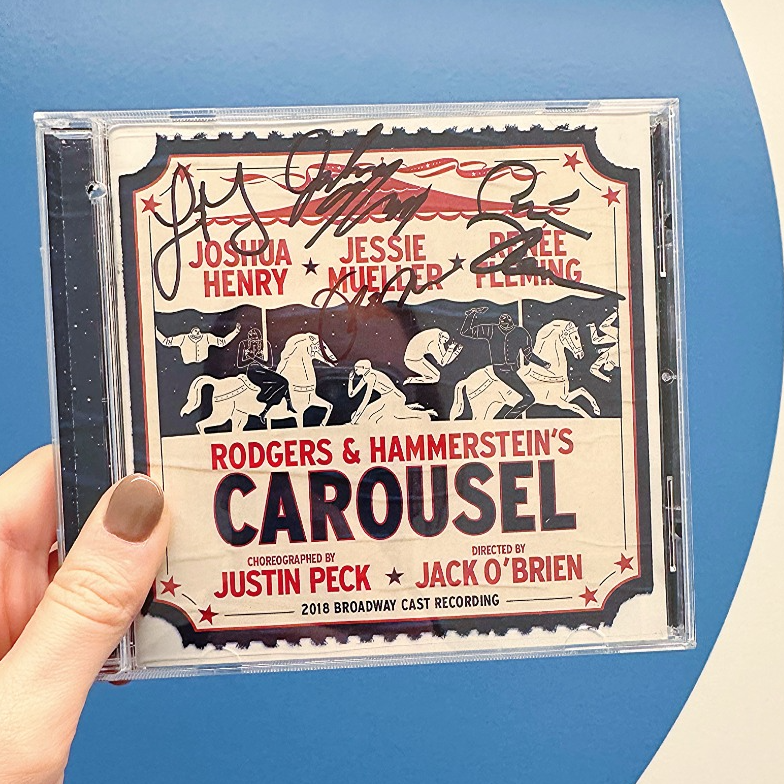 JOSHUA HENRY ★ JESSIE MUELLER ★ RENÉE FLEMING
RODGERS & HAMMERSTEIN'S
CAROUSEL
CHOREOGRAPHED BY JUSTIN PECK ★ DIRECTED BY JACK O'BRIEN
2018 BROADWAY CAST RECORDING